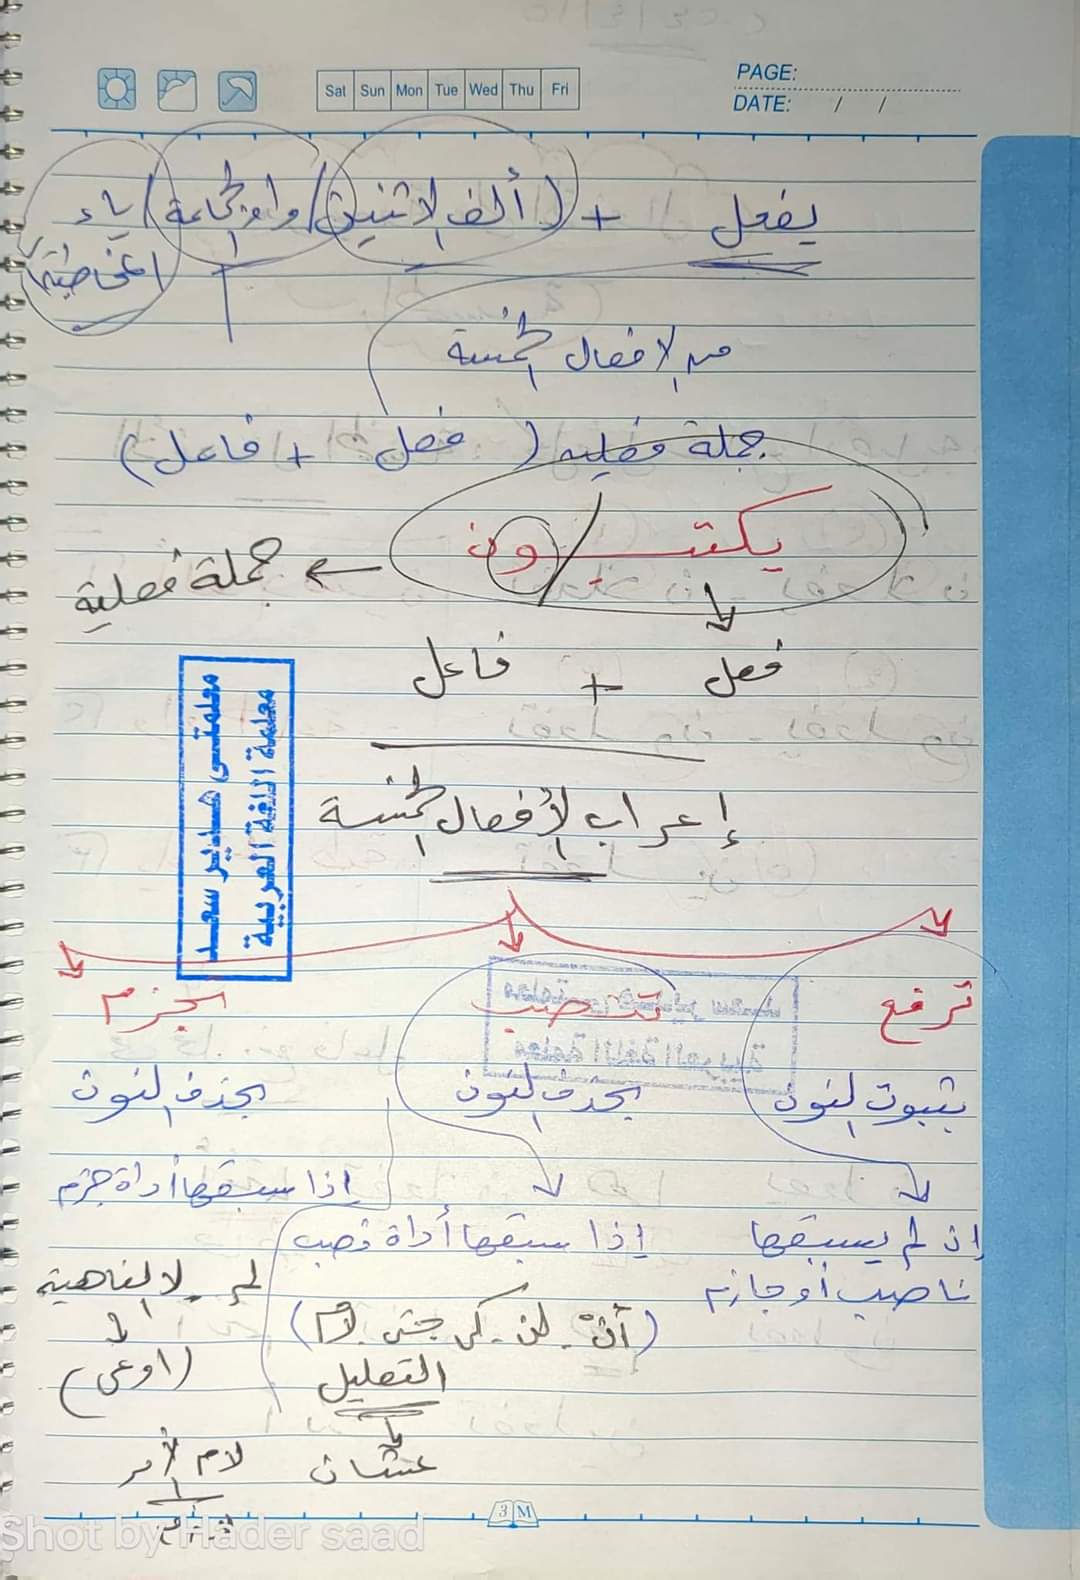 PAGE:
Sat Sun Mon Tue Wed Thu Fri
DATE: / /
يفعل + (ألف الاثنين / واو الجماعة / ياء
المخاطبة)
من الافعال الخمسة
جملة فعليه (فعل + فاعل)
يكتبون ← جملة فعلية
فعل + فاعل
معلمتى هدير سعد
معلمة اللغة العربية
إعراب الأفعال الخمسة
ترفع تنصب تجزم
بثبوت النون بحذف النون بحذف النون
إذا سبقها أداة جزم
إن لم يسبقها إذا سبقها أداة نصب
ناصب أو جازم لم - لا الناهية
(أن - لن - كي - حتى - لام)
التعليل (اوعى)
عشان لام الأمر
3M
Shot by Hader saad